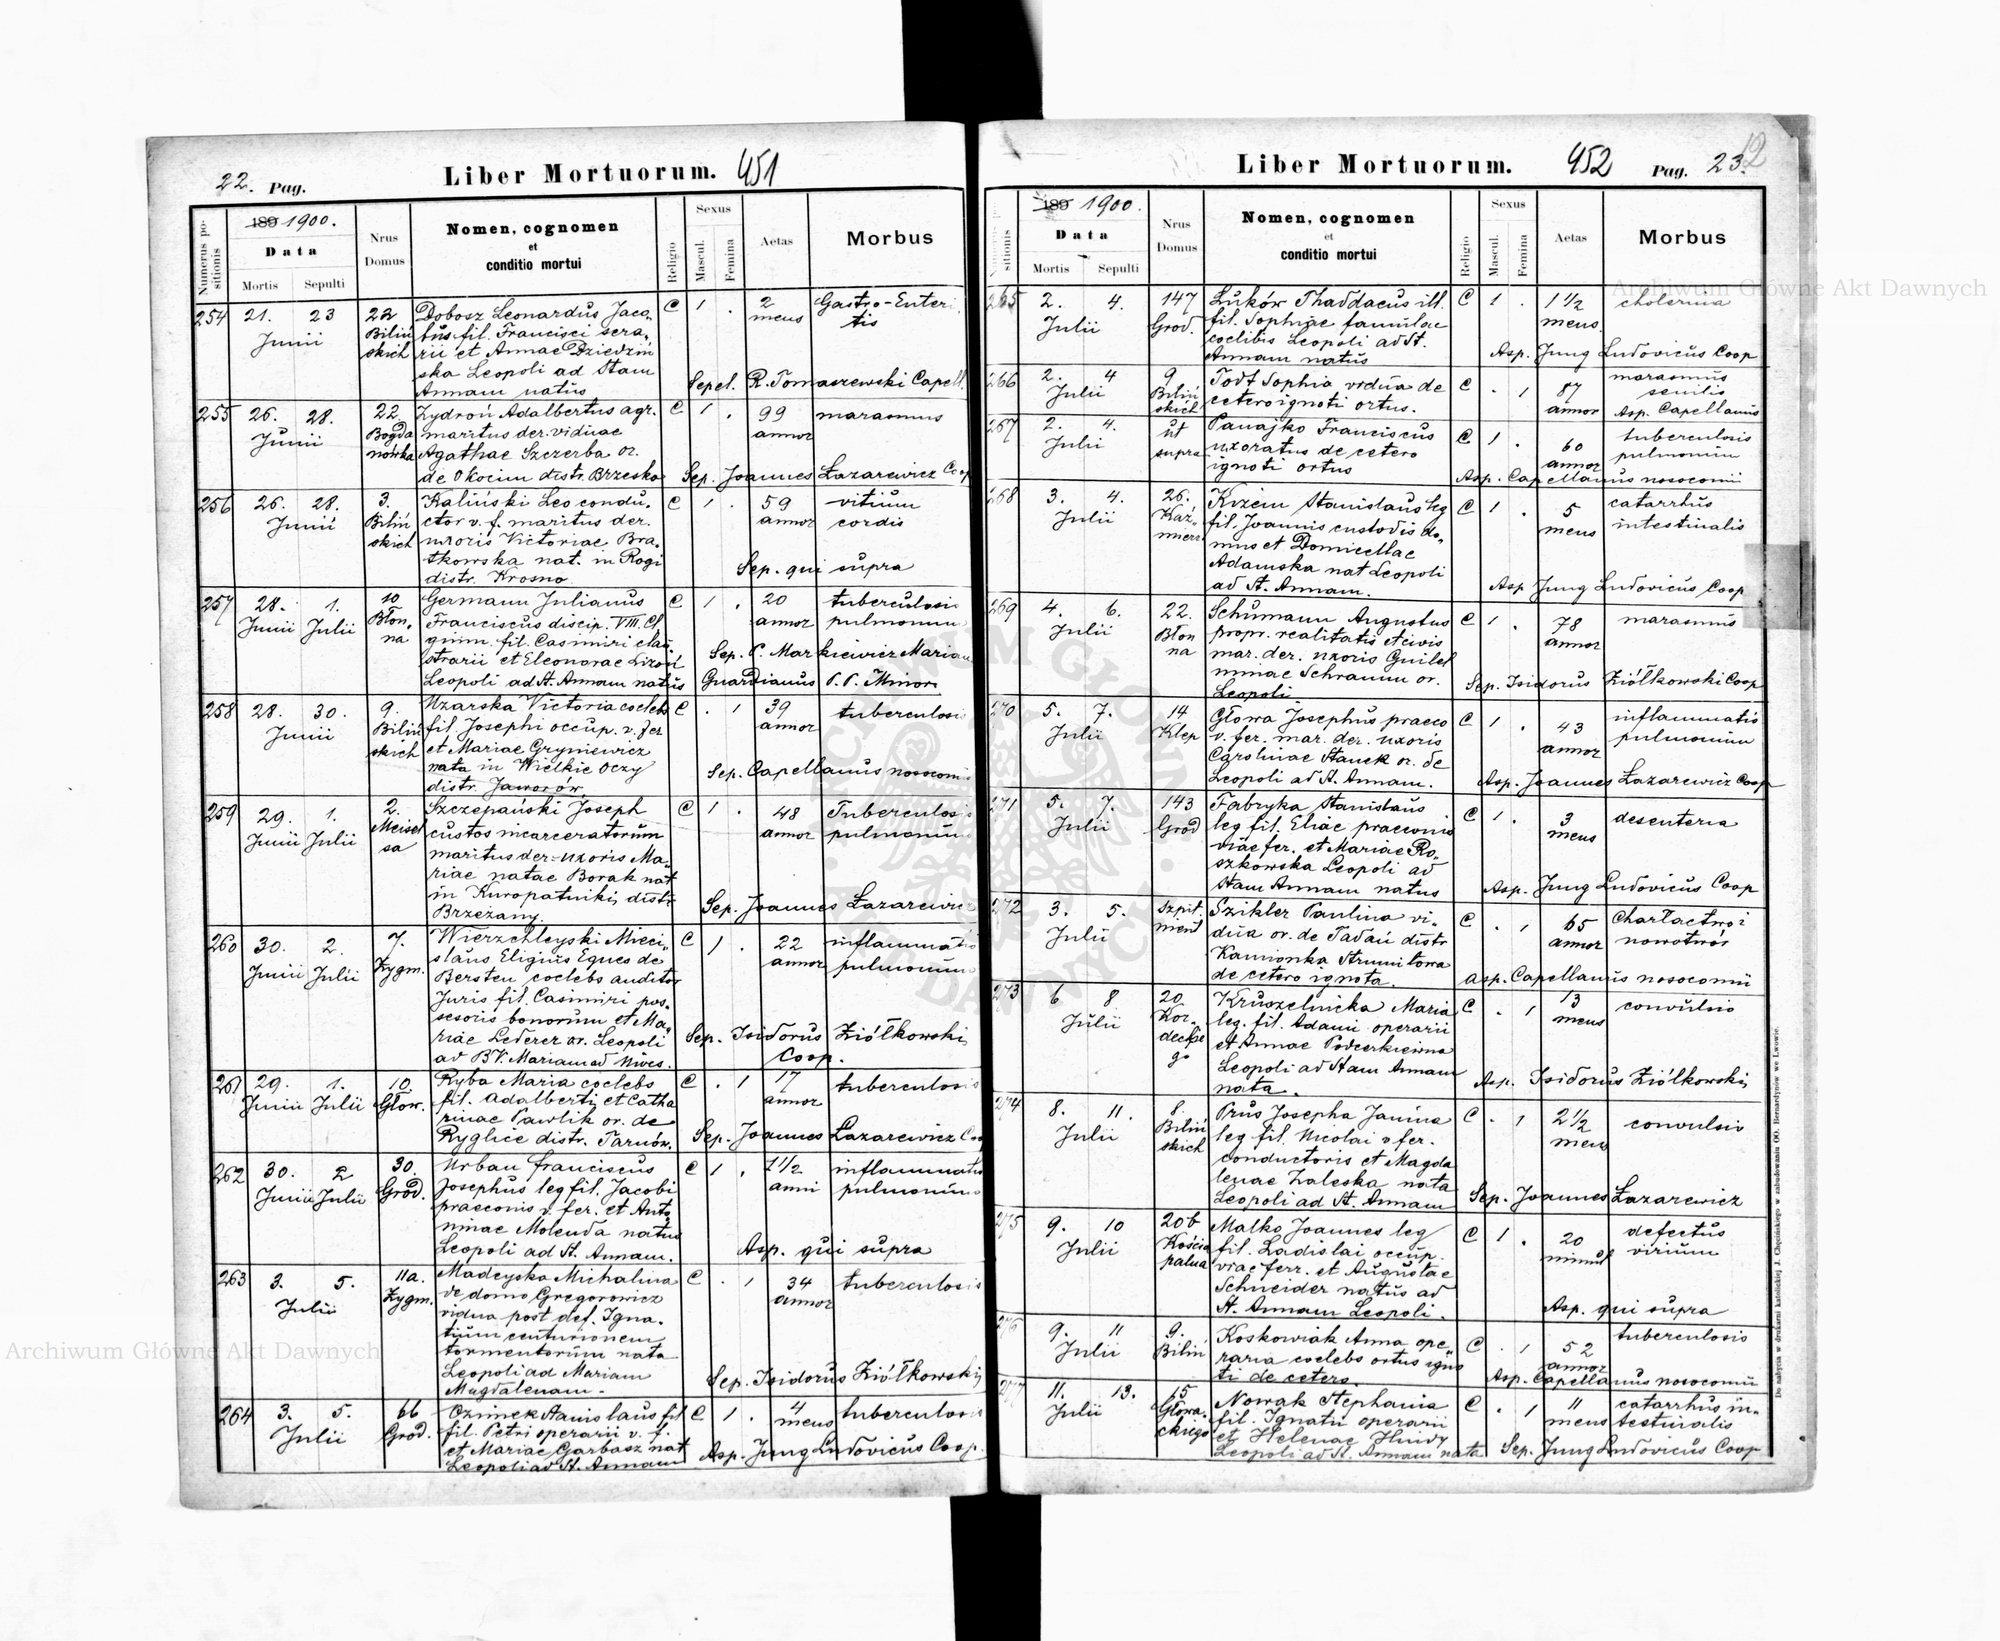 22. Pag.
Liber Mortuorum. 451
Numerus positionis
189 1900.
Data
Mortis
Sepulti
Nrus Domus
Nomen, cognomen
et
conditio mortui
Religio
Sexus
Mascul.
Femina
Aetas
Morbus
254 21. 23 Junii 22 Biliń skich
Dobosz Leonardus Jaco
bus fil. Francisci sera-
rii et Annae Dziedziń
ska Leopoli ad Stam
Annam natus
C 1 . 2 mens Gastro-Enteri tis
Sepel. R. Tomaszewski Capell.
255 26. 28. Junii 22 Bogda nówka
Zydroń Adalbertus agr.
maritus der. viduae
Agathae Szczerba or.
de Okocim distr. Brzesko
C 1 . 99 annor marasmus
Sep. Joannes Łazarewicz Coop
256 26. 28. Junii 3. Biliń skich
Kaliński Leo condu-
ctor v. f. maritus der.
uxoris Victoriae Bra-
tkowska nat. in Rogi
distr. Krosno
C 1 . 59 annor vitium cordis
Sep. qui supra
257 28. Junii 1. Julii 10 Błon. na
Germann Julianus
Franciscus discip. VIII. Cl
gimn. fil. Casimiri claŭ
strarii et Eleonorae Lizoń
Leopoli ad St. Annam natus
C 1 . 20 annor tuberculosis pulmonum
Sep. P. Markiewicz Marian
Guardianus P. P. Minor
258 28. 30. Junii 9. Biliń skich
Uzarska Victoria coelebs
fil. Josephi occup. v. fer
et Mariae Gryniewicz
nata in Wielkie Oczy
distr. Jaworów.
C . 1 39 annor tuberculosis
Sep. Capellanus nosocomii
259 29. Junii 1. Julii 2. Meisel sa
Szczepański Joseph
custos incarceratorum
maritus der. uxoris Ma-
riae natae Borak nat
in Kuropatniki, distr
Brzezany.
C 1 . 48 annor Tuberculosis pulmonum
Sep. Joannes Łazarewicz
260 30. Junii 2. Julii 7. Zygm.
Wierzchleyski Mieci-
slaus Eligius Eques de
Bersten coelebs auditor
Juris fil. Casimiri pos-
sesoris bonorum et Ma-
riae Lederer or. Leopoli
ad B.V. Mariam ad Nives.
C 1 . 22 annor inflammatio pulmonum
Sep. Isidorus Ziółkowski
Coop.
261 29. Junii 1. Julii 10. Głow.
Ryba Maria coelebs
fil. Adalberti et Catha
rinae Pawlik or. de
Ryglice distr. Tarnów.
C . 1 17 annor tuberculosis
Sep. Joannes Łazarewicz Coo
262 30. Junii 2 Julii 30. Grod.
Urban Franciscus
Josephus leg fil. Jacobi
praeconis v. fer. et Anto
ninae Molenda natus
Leopoli ad St. Annam.
C 1 . 1 1/2 anni inflammatio pulmonum
Asp. qui supra
263 3. 5. Julii 11a. Zygm.
Madeyska Michalina
de domo Gregorowicz
vidua post def. Igna-
tium centurionem
tormentorum nata
Leopoli ad Mariam
Magdalenam.
C . 1 34 annor tuberculosis
Sep. Isidorus Ziółkowski
264 3. 5. Julii 66 Grod.
Ozimek Stanislaus fil
fil. Petri operarii v. f.
et Mariae Garbasz nat
Leopoli ad St. Annam
C 1 . 4 mens tuberculosis
Asp. Jung Ludovicus Coop.
Liber Mortuorum. 452 Pag. 23.
12
sitionis
189 1900.
Data
Mortis
Sepulti
Nrus Domus
Nomen, cognomen
et
conditio mortui
Religio
Sexus
Mascul.
Femina
Aetas
Morbus
265 2. 4. Julii 147 Grod.
Łuków Thaddaeus ill.
fil. Sophiae famulae
coelibis Leopoli ad St.
Annam natus
C 1 . 1 1/2 mens. cholerina
Asp. Jung Ludovicus Coop
266 2. 4 Julii 9 Biliń skich
Todt Sophia vidua de
cetero ignoti ortus.
C . 1 87 annor marasmus senilis
Asp. Capellanus
267 2. 4. Julii ut supra
Panajko Franciscus
uxoratus de cetero
ignoti ortus
C 1 . 60 annor tuberculosis pulmonum
Asp. Capellanus nosocomii
268 3. 4. Julii 26. Kaź- mierz
Krzem Stanislaus leg
fil. Joannis custodis do-
mus et Domicellae
Adamska nat Leopoli
ad St. Annam.
C 1 . 5 mens catarrhus intestinalis
Asp Jung Ludovicus Coop
269 4. 6. Julii 22. Błon na
Schumann Augustus
propr. realitatis et civis
mar. der. uxoris Guilel
minae Schramm or.
Leopoli
C 1 . 78 annor marasmus
Sep. Isidorus Ziółkowski Coop
270 5. 7. Julii 14 Klep
Głowa Josephus praeco
v. fer. mar. der. uxoris
Carolinae Stanek or. de
Leopoli ad St. Annam.
C 1 . 43 annor inflammatio pulmonum
Asp. Joannes Łazarewicz Coop
271 5. 7. Julii 143 Grod
Fabryka Stanislaus
leg fil. Eliae praeconis
viae fer. et Mariae Ro-
szkowska Leopoli ad
Stam Annam natus
C 1 . 3 mens desenteria
Asp. Jung Ludovicus Coop
272 3. 5. Julii szpit.
Szikler Paulina vi-
dua or. de Tadań distr
Kamionka Strumiłowa
de cetero ignota.
C . 1 65 annor Charłactwo i nowotwór
Asp. Capellanus nosocomii
273 6 8 Julii 20 Kor- deckie go
Kruszelnicka Maria
leg. fil. Adami operarii
et Annae Podcerkiewna
Leopoli ad Stam Annam
nata.
C . 1 13 mens convulsio
Asp. Isidorus Ziółkowski
274 8. 11. Julii 8. Biliń skich
Prus Josepha Janina
leg fil. Nicolai v fer.
conductoris et Magda
lenae Zaleska nata
Leopoli ad St. Annam
C . 1 2 1/2 mens convulsio
Sep. Joannes Łazarewicz
275 9. 10 Julii 20b Kościo palna
Malko Joannes leg
fil. Ladislai occup.
viae ferr. et Augustae
Schneider natus ad
St. Annam Leopoli.
C 1 . 20 minut defectus virium
Asp. qui supra
276 9. 11 Julii 9. Biliń
Koskowiak Anna ope-
raria coelebs ortus igno
ti de cetero.
C . 1 52 annor tuberculosis
Asp. Capellanus nosocomii
277 11. 13. Julii 15 Głowa- ckiego
Nowak Stephania
fil. Ignatii operarii
et Helenae Hnidy
Leopoli ad St. Annam nata
C . 1 11 mens catarrhus in- testinalis
Sep. Jung Ludovicus Coop
Do nabycia w drukarni katolickiej J. Chęcińskiego w zabudowaniu OO. Bernardynów we Lwowie.
Archiwum Główne Akt Dawnych
Archiwum Główne Akt Dawnych
ARCHIWUM GŁÓWNE AKT DAWNYCH